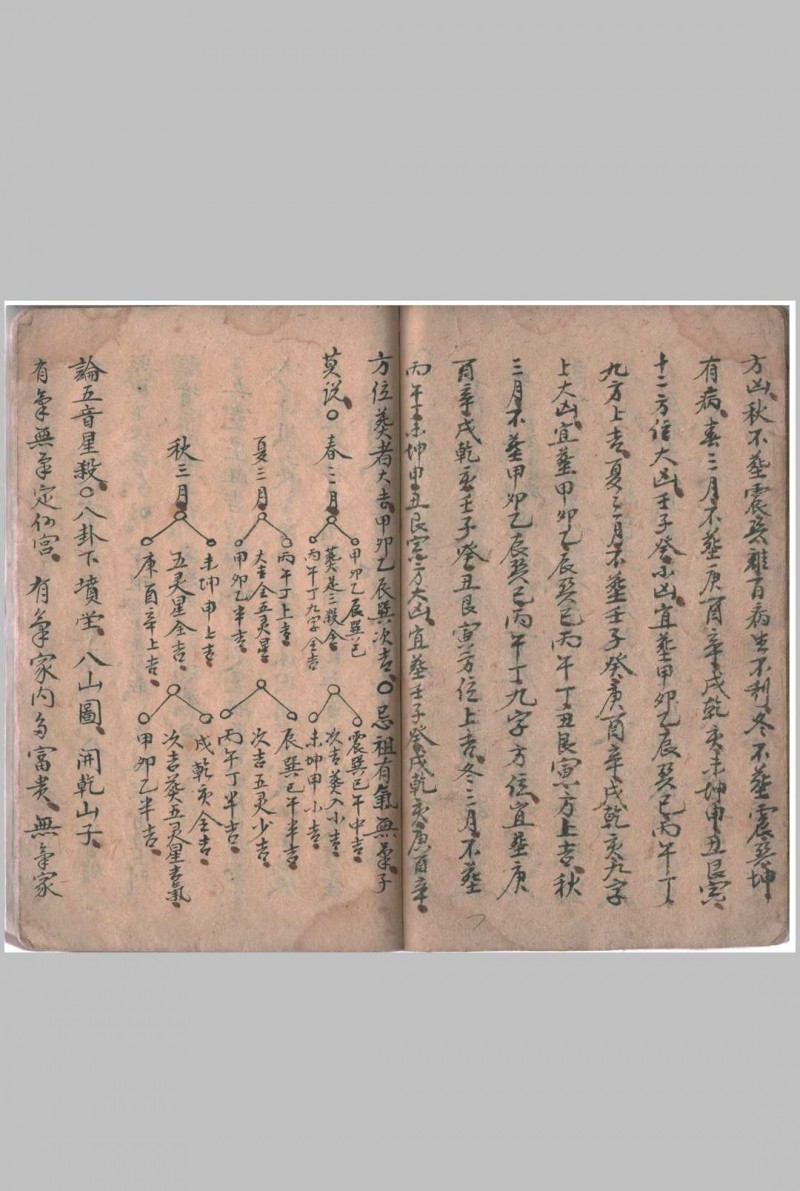 方凶、秋不塟震巽離百病生不利、冬不塟震巽坤
有病、春三月不塟庚酉辛戌乾亥未坤申丑艮寅
十二方位大凶、壬子癸小凶、宜塟甲卯乙辰巽巳丙午丁
九方上吉、夏三月不塟壬子癸庚酉辛戌乾亥九字
上大凶、宜塟甲卯乙辰巽巳丙午丁丑艮寅方上吉、秋
三月不塟甲卯乙辰巽巳丙午丁九字方位、宜塟庚
酉辛戌乾亥壬子癸丑艮寅方位上吉、冬三月不塟
丙午丁未坤申丑艮寅方大凶、宜塟壬子癸戌乾亥庚酉辛、
方位葬者大吉、甲卯乙辰巽次吉、〇忌祖有氣無氣子
莫说〇春三月
甲卯乙辰巽巳
葬是三殺全
丙午丁九字全吉
震巽巳午中吉
次吉葬入小吉
未坤申小吉
夏三月
丙午丁上吉
大吉全五灵星
甲卯乙半吉
辰巽巳午半吉
次吉五灵少吉
丙午丁半吉
秋三月
未坤申上吉
五灵星全吉
庚酉辛上吉
戌乾亥全吉
次吉葬五灵星吉氣
甲卯乙半吉
論五音星殺〇八卦下墳塋、八山圖、開乾山子
有氣無氣定仙宫、有氣家内多富貴、無氣家